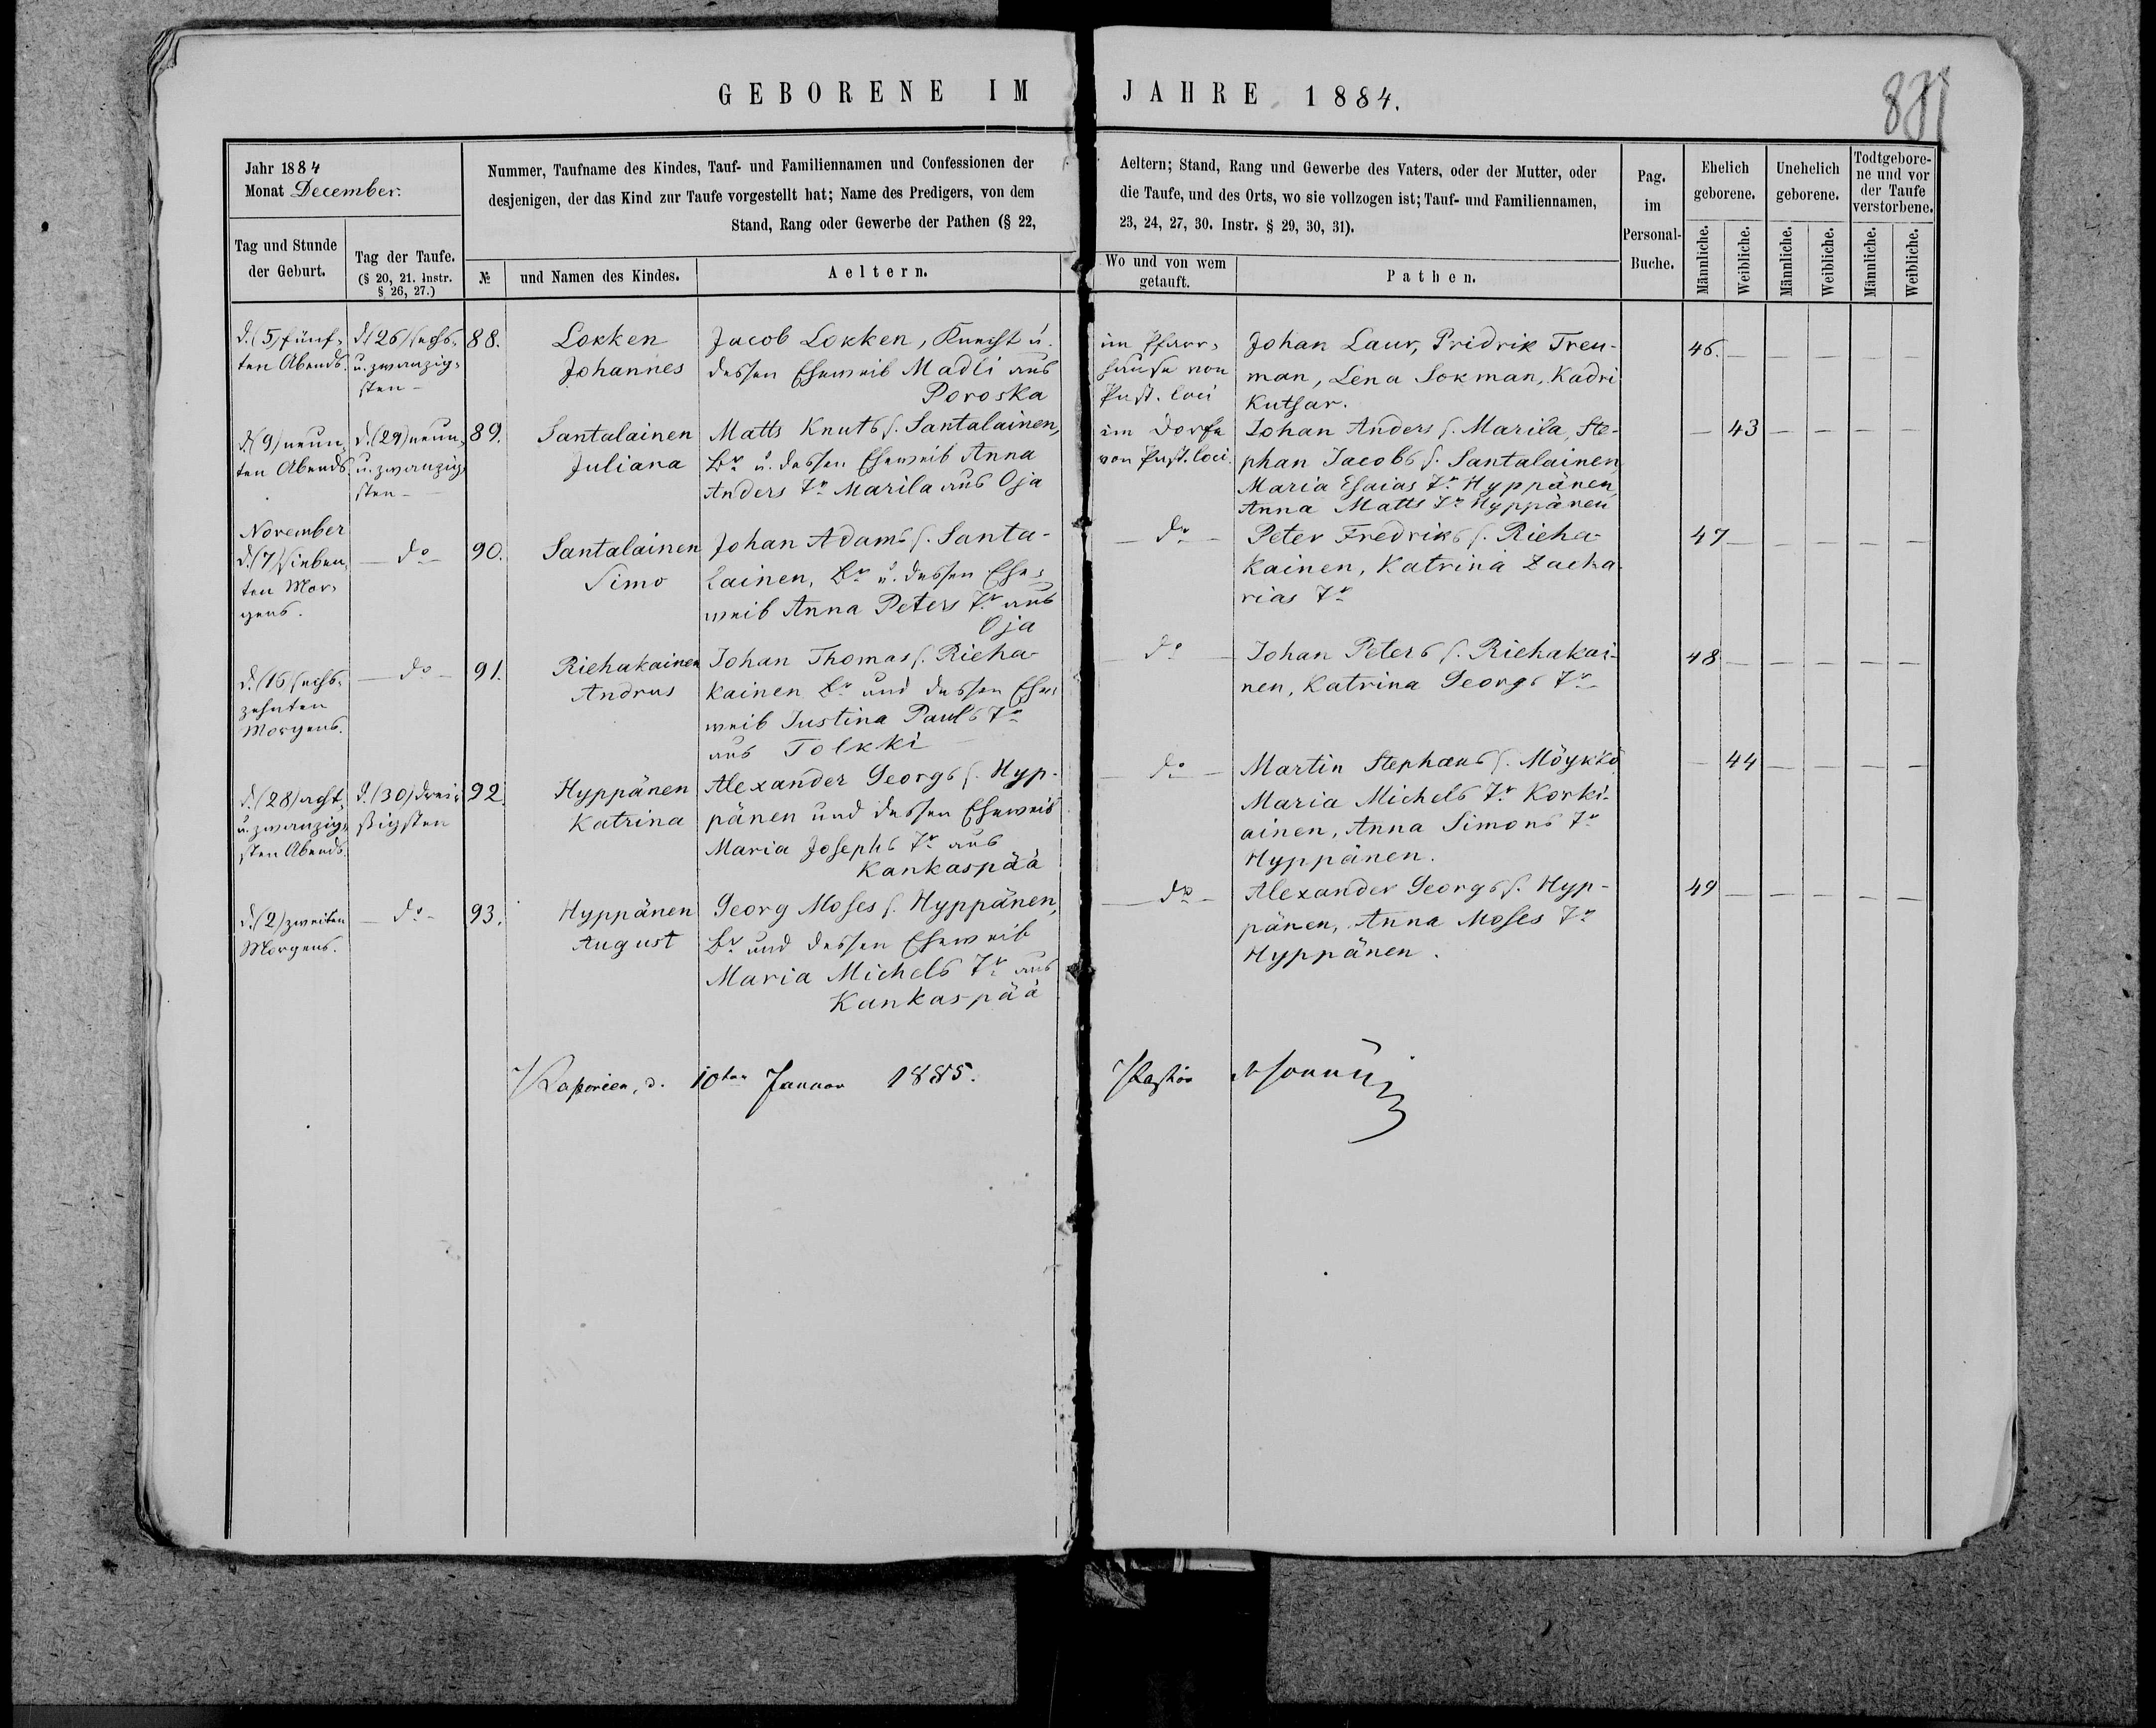 GEBORENE IM JAHRE 1884.
Jahr 1884
Monat December.
Nummer, Taufname des Kindes, Tauf- und Familiennamen und Confessionen der
desjenigen, der das Kind zur Taufe vorgestellt hat; Name des Predigers, von dem
Stand, Rang oder Gewerbe der Pathen (§ 22,
Aeltern; Stand, Rang und Gewerbe des Vaters, oder der Mutter, oder
die Taufe, und des Orts, wo sie vollzogen ist; Tauf- und Familiennamen,
23, 24, 27, 30. Instr. § 29, 30, 31).
Pag.
im
Personal-
Buche.
Ehelich
geborene.
Unehelich
geborene.
Todtgebore-
ne und vor
der Taufe
verstorbene.
Tag und Stunde
der Geburt.
Tag der Taufe.
(§ 20, 21. Instr.
§ 26, 27.)
№
und Namen des Kindes.
Aeltern.
Wo und von wem
getauft.
Pathen.
Männliche.
Weibliche.
Männliche.
Weibliche.
Männliche.
Weibliche.
d. (5) fünf-
ten Abends.
d. (26) sechs-
u. zwanzig-
sten –
88.
Lokken
Johannes
Jacob Lokken, Knecht u.
dessen Eheweib Madli aus
Poroska
im Pfarr-
hause von
Past. loci
Johan Laur, Pridrik Treu-
man, Lena Sokman, Kadri
Kutsar.
46. – – – – –
d. (9) neun-
ten Abends
d. (29) neun-
u. zwanzig-
sten –
89.
Santalainen
Juliana
Matts Knuts s. Santalainen,
Br u. dessen Eheweib Anna
Anders Tr Marila aus Oja
im Dorfe
von Past. loci.
Johan Anders s. Marila, Ste-
phan Jacobs s. Santalainen,
Maria Esaias Tr Hyppänen,
Anna Matts Tr Hyppänen
– 43 – – – –
November
d. (7) sieben-
ten Mor-
gens.
– do –
90.
Santalainen
Simo
Johan Adams s. Santa-
lainen, Br u. dessen Ehe-
weib Anna Peters Tr aus
Oja
– do –
Peter Fredriks s. Rieha-
kainen, Katrina Zacha-
rias Tr
47 – – – – –
d. (16) sechs-
zehnten
Morgens.
– do –
91.
Riehakainen
Andrus
Johan Thomas s. Rieha-
kainen Br und dessen Ehe-
weib Justina Pauls Tr
aus Tolkki –
– do –
Johan Peters s. Riehakai-
nen, Katrina Georgs Tr –
48 – – – – –
d. (28) acht-
u. zwanzig-
sten Abends.
d. (30) drei-
ßigsten
92.
Hyppänen
Katrina
Alexander Georgs s. Hyp-
pänen und dessen Eheweib
Maria Josephs Tr aus
Kankaspää
– do –
Martin Stephans s. Möykkö,
Maria Michels Tr Korki-
ainen, Anna Simons Tr
Hyppänen.
– 44 – – – –
d. (2) zweiten
Morgens.
– do –
93.
Hyppänen
August
Georg Moses s. Hyppänen,
Br und dessen Eheweib
Maria Michels Tr aus
Kankaspää
– do –
Alexander Georgs s. Hyp-
pänen, Anna Moses Tr
Hyppänen.
49 – – – – –
Kaporien, d. 10ten Januar 1885. Pastor